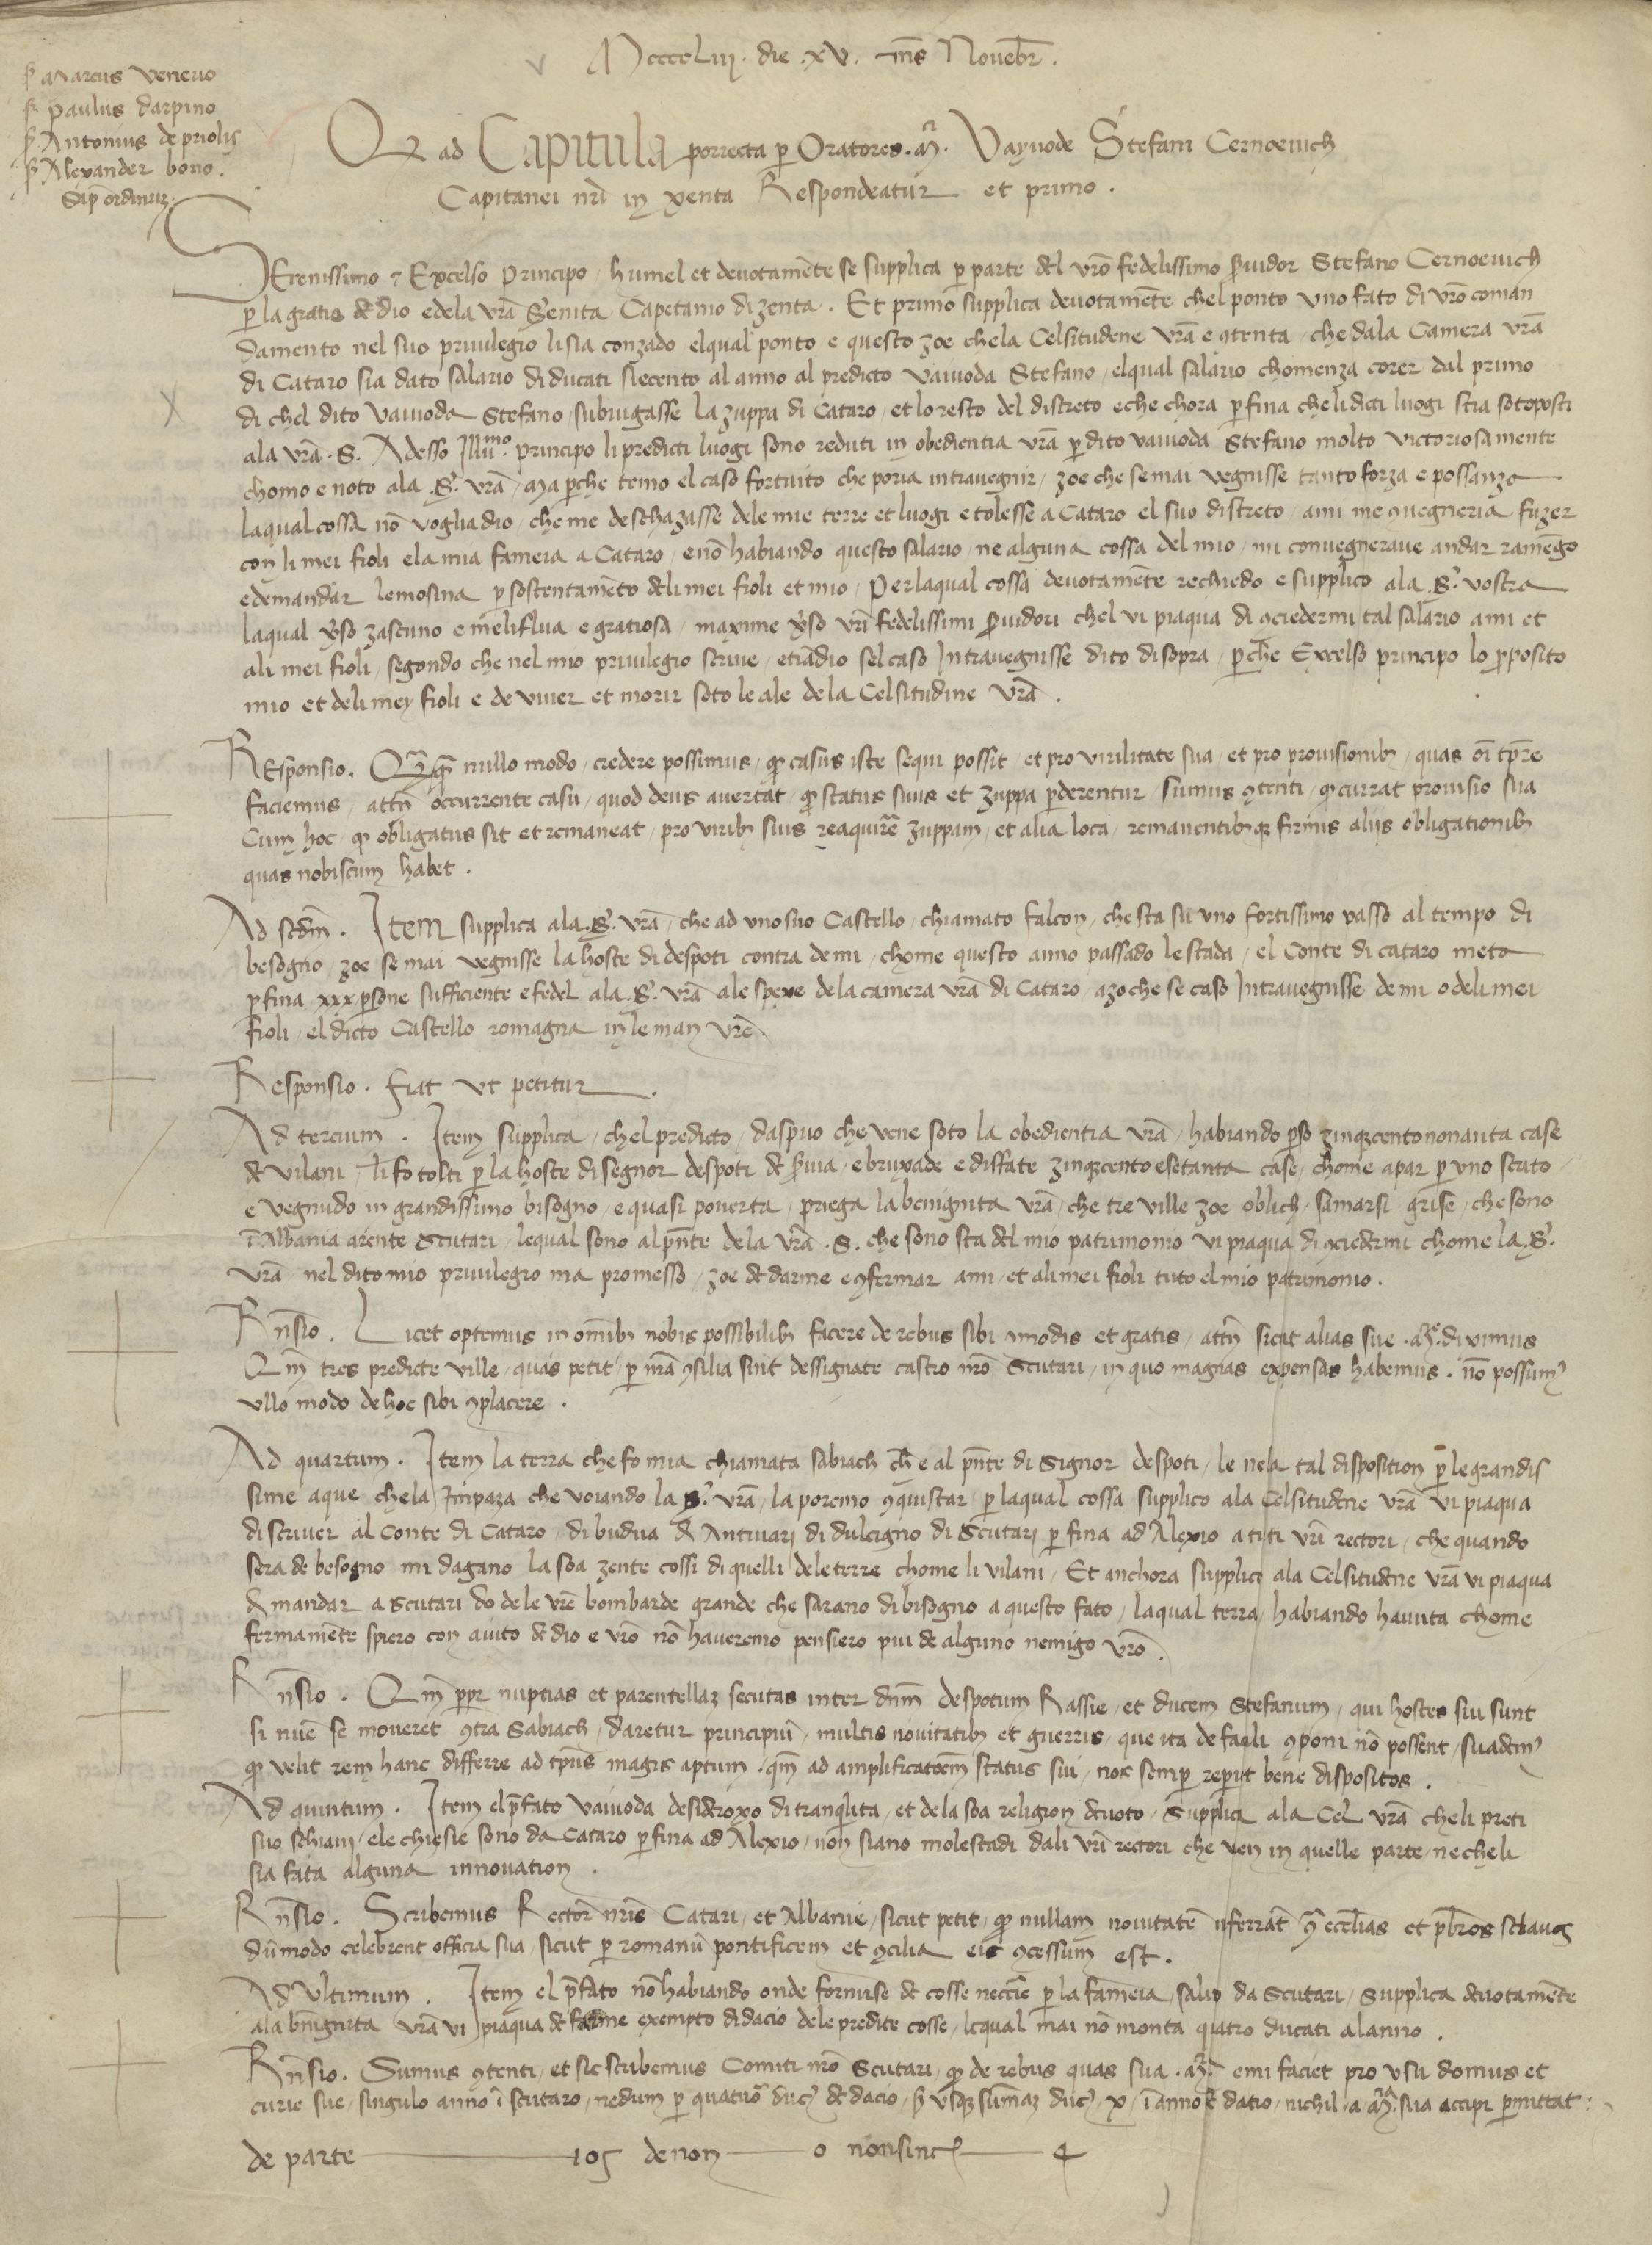 Mccccliij. die .xv. mēs Novēbr̄.
S Marcus venerio
S Paulus darpino
S Antonius de priolis
S Alexander bono.
Sap ordinuȝ.
Q ad Capitula porrecta p Oratores .M. Vayvode Stefani Cernoevich
Capitanei nrī in xenta Respondeatur et primo.
SErenissimo ⁊ Excelso Principo, humel et devotamēte se supplica p parte del vrō fedelissimo s̄vidor Stefano Cernoevich
p la gratis de dio e dela vrā Senita Capetanio di zenta. Et primo supplica devotamēte chel ponto uno fato di vrō coman
damento nel suo privilegio li sia conzado elqual ponto e questo zoe chela Celsitudene vrā e ꝯtenta, che dala Camera vrā
di Cataro sia dato salario di ducati siecento al anno al predicto vaivoda Stefano, elqual salario chomenza corer dal primo
di chel dito vaivoda Stefano, subiugasse la zuppa di Cataro, et lo resto del discreto e che chora p fina che li dicti luogi stia sotoposti
ala vrā .S. Adesso Illu.mo principo li predicti luogi sono reduti in obedientia vrā p dito vaivoda Stefano molto victoriosamente
chomo e noto ala .S. vrā, Ma pche temo el caso fortuito che poria intravegnir, zoe che se mai vegnisse tanto forza e possanza
laqual cossa nō voglia dio, che me deschazasse dele mie terre et luogi e tolesse a Cataro el suo distreto, ami me ꝯvegneria fuzer
con li mei fioli e la mia famera a Cataro, e nō habiando questo salario, ne alguna cossa del mio, mi convegnerave andar ramēgo
e demandar lemosina p sostentamēto deli mei fioli et mio, Per laqual cossa devotamēte rechiedo e supplico ala .S. vostra
laqual v̄so zascuno e meliflua e gratiosa, maxime v̄so vrī fedelissimi s̄vidori chel vi piaqua di ꝯciedermi tal salario ami et
ali mei fioli, segondo che nel mio privilegio scrive, etiādio sel caso Intravegnisse dito di sopra, pche Excelso principo lo pposito
mio et deli mey fioli e de viver et morir soto le ale de la Celsitudine vrā.
REsponsio. Qꝫqꝫ nullo modo, credere possimus, ꝙ casus iste sequi possit, et pro virilitate sua, et pro provisionib, quas oī tpre
faciemus, attn̄ occurrente casu, quod deus avertat, ꝙ status suus et zuppa pderentur, sumus ꝯtenti, ꝙ currat provisio sua
Cum hoc, ꝙ obligatus sit et remaneat, pro virib suis reaquirē zuppam, et alia loca, remanentibꝫ firmis aliis obligationib
quas nobiscum habet.
Ad scdm̄. Item supplica ala .S. vrā, che ad uno suo Castello, chiamato falcon, che sta su uno fortissimo passo al tempo di
besogno, zoe se mai vegnisse la hoste di despoti contra de mi, chome questo anno passado le stada, el Conte di cataro meta
p fina xxx psone sufficiente e fedel ala .S. vrā ale spexe dela camera vrā di Cataro, azo che se caso Intravegnisse de mi o deli mei
fioli, el dicto Castello romagna in le man vrē.
Responsio. fiat ut petitur.
Ad tercium. Item supplica, chel predicto, daspuo che vene soto la obedientia vrā, habiando pso zinqꝫcentononanta case
de vilani, li fo tolti p la hoste di segnor despoti de s̄via, e bruxade e disfate zinqꝫcento e setanta case, chome apar p uno scrito,
e vegnudo in grandissimo bisogno, e quasi poverta, priega la benignita vrā, che tre ville zoe oblich, samarsi, grise, che sono
ī Albania arente Scutari, lequal sono al pn̄te de la vrā .S. che sono sta del mio patrimonio vi piaqua di ꝯciedermi chome la .S.
vrā nel dito mio privilegio ma promesso, zoe de darme e ꝯfermar ami, et ali mei fioli tuto el mio patrimonio.
Rn̄sio. Licet optemus in omīb nobis possibilib facere de rebus sibi ꝯmodis et gratis, attn̄ sicut alias sue .M. diximus
Qm̄ tres predicte ville, quas petit, p nrā ꝯsilia sint dessignate castro nrō Scutari, in quo magnas expensas habemus. nō possum
ullo modo de hoc sibi ꝯplacere.
Ad quartum. Item la terra che fo mia chiamata sabiach ch e al pn̄te di Signor despoti, le nela tal disposition p le grandis
sime aque che la Impaza che voiando la .S. vrā, la poremo ꝯquistar, p laqual cossa supplico ala Celsitudene vrā vi piaqua
di scriver al Conte di Cataro, di budua de Antivari di dulcigno di Scutari p fina ad Alexio a tuti vri rectori, che quando
sera de besogno mi dagano la soa zente cossi di quelli dele terre chome li vilani, Et anchora supplico ala Celsitudene vrā vi piaqua
de mandar a Scutari do dele vrē bombarde grande che sarano di bisogno a questo fato, laqual terra, habiando havuta chome
fermamēte spiero con aiuto de dio e vrō nō haveremo pensiero piu de alguno nemigo vrō.
Rn̄sio. Qm̄ ppr nuptias et parentellaȝ secutas inter dn̄m despotum Rassie, et ducem Stefanum, qui hostes sui sunt
si nūc se moveret ꝯtra Sabiach, daretur principiū, multis novitatib et guerris, que ita de facili ꝯponi nō possent, suadem
ꝙ velit rem hanc differre ad tpus magis aptum, qm̄ ad amplificatōem status sui, nos semp repiet bene dispositos.
Ad quintum. Item el pfato vaivoda desideroxo di tranqlita, et dela soa religion devoto, Supplica ala Cel. vrā che li preti
suo schiavi, e le chiesie sono da Cataro p fina ad Alexio, non siano molestadi dali vri rectori che ven in quelle parte, ne che li
sia fata alguna innovation.
Rn̄sio. Scribemus Rectorī nrīs Catari, et Albanie, sicut petit, ꝙ nullam novitatē īferrāt ꝯ eccl̄ias et pbr̄os sclavos
dūmodo celebrent officia sua, sicut p romanū pontificem et ꝯcilia eis ꝯcessum est.
Ad Ultimum. Item el pfato nō habiando onde fornirse de cosse neccie p la fameia, salvo da Scutari, Supplica devotamēte
ala bnignita vrā vi piaqua de farme exempto di dacio dele predite cosse, lequal mai nō monta quatro ducati al anno.
Rn̄sio. Sumus ꝯtenti, et sic scribemus Comiti nrō Scutari, ꝙ de rebus quas sua .M. emi faciet pro usu domus et
curie sue, singulo anno ī scutaro, nedum p quatuor duc de dacio, s usqꝫ summaȝ duc x, ī anno de datio, nichil a M. sua accipi pmittat:
de parte 105 de non 0 non sinc 4